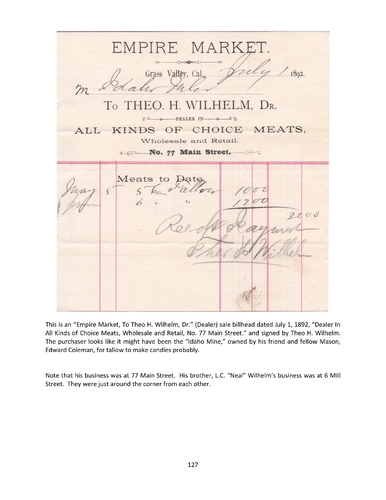 EMPIRE MARKET.
Grass Valley, Cal., July 1 1892.
M Idaho Mine
To THEO. H. WILHELM, Dr.
DEALER IN
ALL KINDS OF CHOICE MEATS,
Wholesale and Retail.
No. 77 Main Street.
Meats to Date
May 5 5 Tallow 1000
6 " " 1200
2200
Recd Payment
Theo H Wilhelm
This is an "Empire Market, To Theo H. Wilhelm, Dr." (Dealer) sale billhead dated July 1, 1892, "Dealer In
All Kinds of Choice Meats, Wholesale and Retail, No. 77 Main Street." and signed by Theo H. Wilhelm.
The purchaser looks like it might have been the "Idaho Mine," owned by his friend and fellow Mason,
Edward Coleman, for tallow to make candles probably.
Note that his business was at 77 Main Street. His brother, L.C. "Neal" Wilhelm's business was at 6 Mill
Street. They were just around the corner from each other.
127